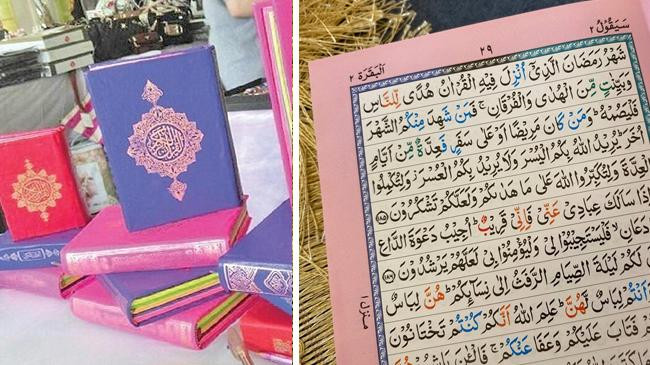 القرآن الكريم
سَيَقُوْلُ ٢
٢٩
اَلْبَقَرَة ٢
شَهْرُ رَمَضَانَ الَّذِيْٓ اُنْزِلَ فِيْهِ الْقُرْاٰنُ هُدًى لِّلنَّاسِ
وَبَيِّنٰتٍ مِّنَ الْهُدٰى وَالْفُرْقَانِ ۚ فَمَنْ شَهِدَ مِنْكُمُ الشَّهْرَ
فَلْيَصُمْهُ ؕ وَمَنْ كَانَ مَرِيْضًا اَوْ عَلٰى سَفَرٍ فَعِدَّةٌ مِّنْ اَيَّامٍ
اُخَرَ ؕ يُرِيْدُ اللّٰهُ بِكُمُ الْيُسْرَ وَلَا يُرِيْدُ بِكُمُ الْعُسْرَ ؗ وَلِتُكْمِلُوا
الْعِدَّةَ وَلِتُكَبِّرُوا اللّٰهَ عَلٰى مَا هَدٰىكُمْ وَلَعَلَّكُمْ تَشْكُرُوْنَ ١٨٥
اِذَا سَاَلَكَ عِبَادِيْ عَنِّيْ فَاِنِّيْ قَرِيْبٌ ؕ اُجِيْبُ دَعْوَةَ الدَّاعِ
دَعَانِ ۙ فَلْيَسْتَجِيْبُوْا لِيْ وَلْيُؤْمِنُوْا بِيْ لَعَلَّهُمْ يَرْشُدُوْنَ ١٨٦
لَكُمْ لَيْلَةَ الصِّيَامِ الرَّفَثُ اِلٰى نِسَآئِكُمْ ؕ هُنَّ لِبَاسٌ
اَنْتُمْ لِبَاسٌ لَّهُنَّ ؕ عَلِمَ اللّٰهُ اَنَّكُمْ كُنْتُمْ تَخْتَانُوْنَ
فَتَابَ عَلَيْكُمْ وَعَفَا عَنْكُمْ ۚ فَالْـٰٔنَ
منزل ١